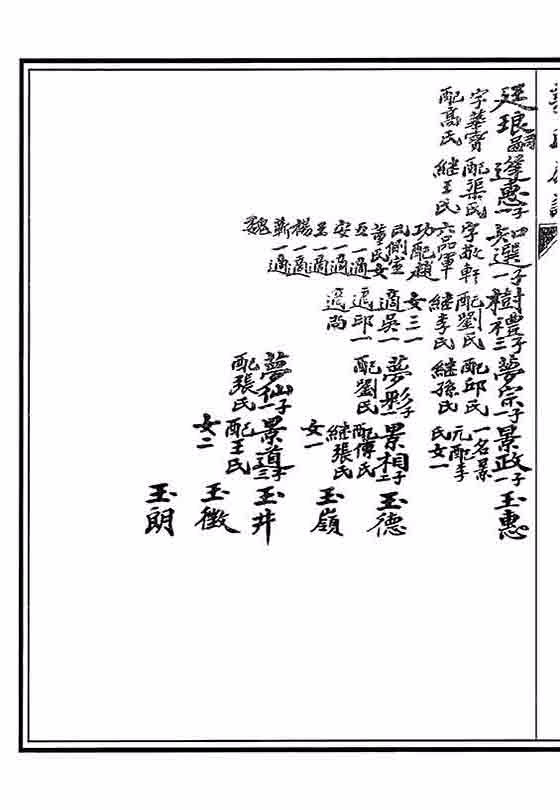 廷琅嗣
字華賓
配高氏
逢蕙一子
配渠氏
継王氏
選一子
字敬軒
六品軍
功配趙
氏側室
董氏女
五一適
安一適
王一適
楊一適
靳一適
魏
樹禮三子
配劉氏
継李氏
女三一
適吳一
適邱一
適尚
夢宗一子
配邱氏
継孫氏
景政一子
一名景
元配李
氏女一
玉惠
夢彤一子
配劉氏
景相二子
配傅氏
継張氏
女一
玉德
玉嶺
夢仙一子
配張氏
景道三子
配王氏
女二
玉井
玉徵
玉朗